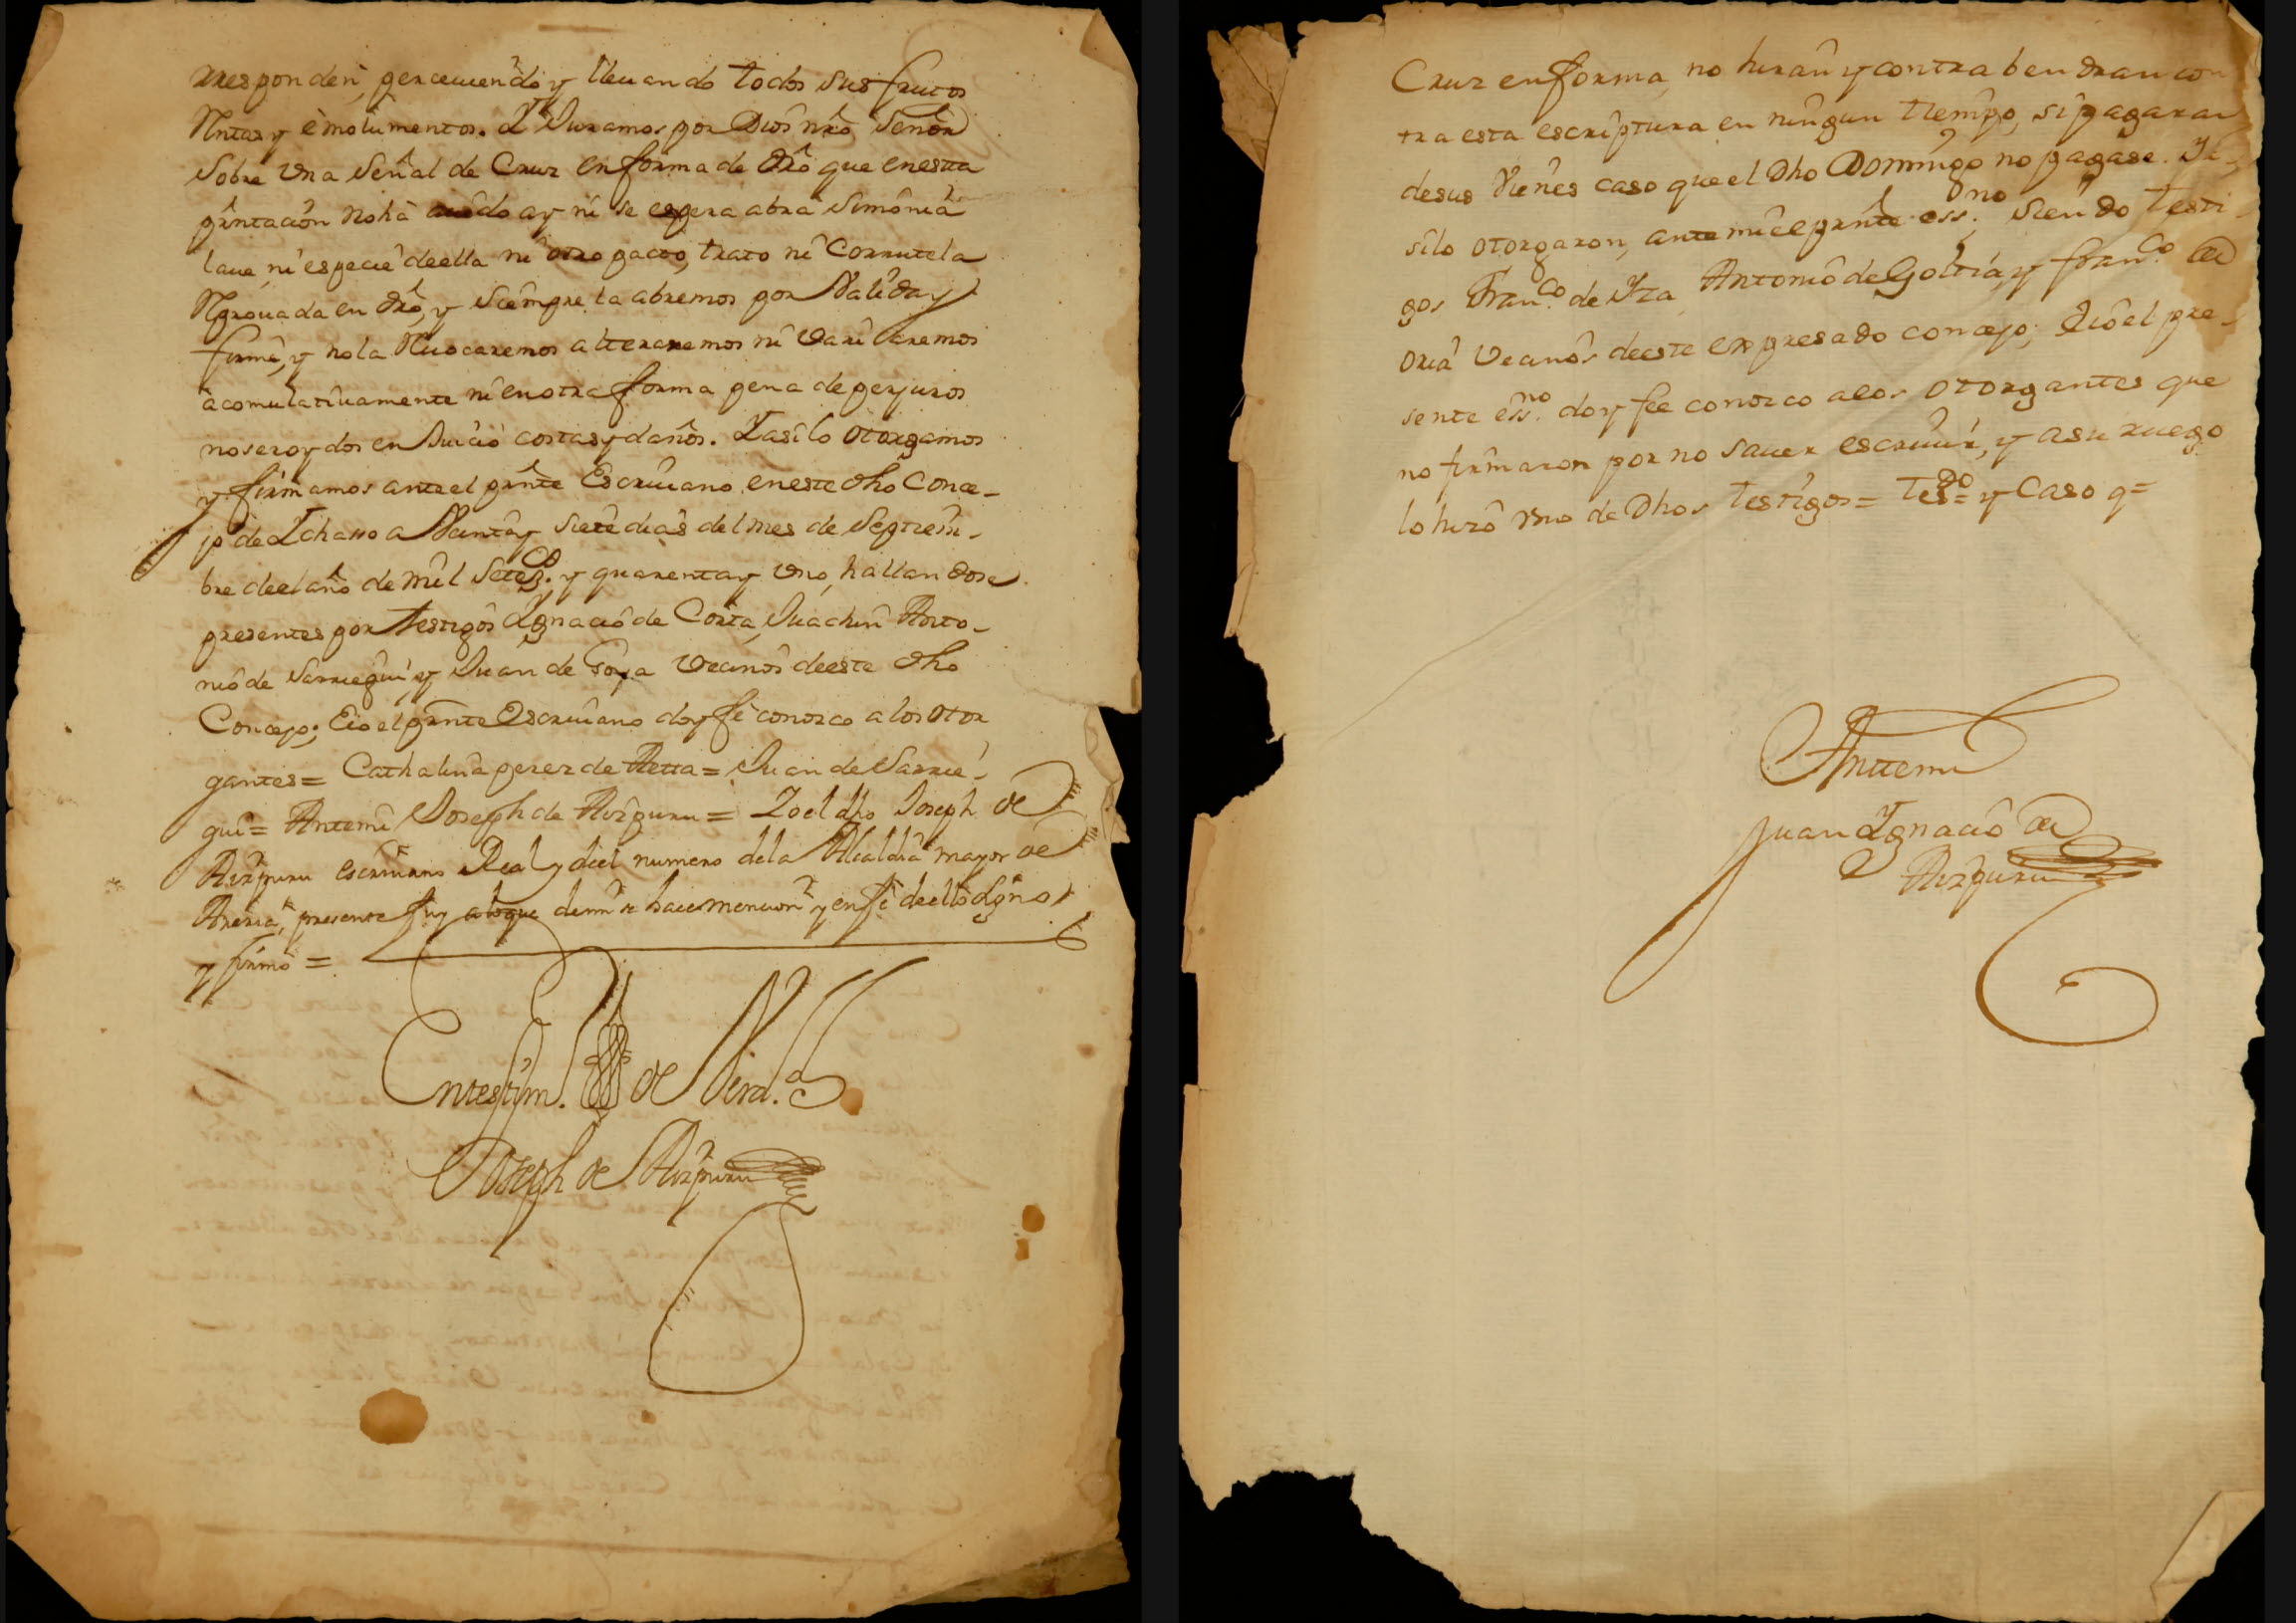 rresponden, perceuiendo y lleuando todos sus frutos
Rentas y emolumentos. Y Juramos por Dios nrō Señor
sobre Vna señal de Cruz en forma de drō que en esta
prntacion no hà auido ay ni se espera abrà Simonia
laue, ni especie de ella ni otro pacto, trato ni Corrutela
Reprouada en drō, y siempre la abremos por Valida y
firme, y no la Reuocaremos alteraremos ni variaremos
àcomulatiuamente ni en otra forma pena de perjuros
no ser oydos en Juicio costas y daños. Y asi lo otorgamos
y firmamos ante el prnte Escriuano en este dho Conce-
jo de Ichasso a Veinte y siete dias del mes de Septiem-
bre de el año de mil setez.os y quarenta y vno, hallandose
presentes por testigos Ignacio de Corta, Juachin Anto-
nio de Sarriegui y Juan de Goya vecinos de este dho
Concejo; E io el prnte Escriuano doy fè conozco a los otor
gantes = Cathalina perez de Aetta = Juan de Sarrie-
gui = Antemi Joseph de Aizpuru = Yo el dho Joseph de
Aizpuru escriuano Real y del numero de la Alcaldia mayor de
Areria, presente fuy a lo que de mi se hace mencion y en fè de ello signo
y firmo =
En testim.o de Verd.d
Joseph de Aizpuru
Cruz en forma, no hiran y contrabendran con
tra esta escriptura en ningun tiempo, si pagaran
de sus Vienes caso que el Dho Domingo no pagase. Ya-
si lo otorgaron, ante mi el prnte ess.no siendo testi-
gos Fran.co de Yza, Antonio de Goitia, y fran.co de
oria vecinos de este expresado concejo; E io el pre-
sente ess.no doy fee conozco a los otorgantes que
no firmaron por no sauer escriuir, y a su ruego
lo hizo vno de Dhos testigos = Tes.do = y Caso q =
Anttemi
Juan Ygnacio de
Aizpuru